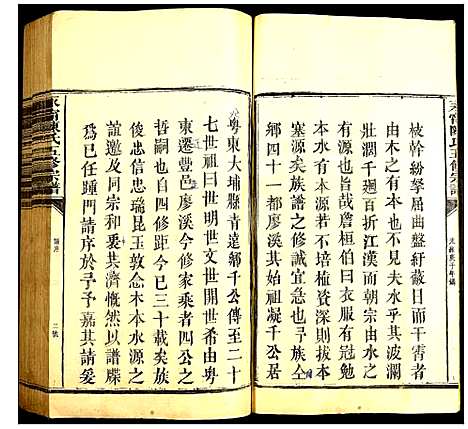 枝幹紛拏屈曲盤紆蔽日而干霄者
由木之有根也千支萬派其波瀾
壯闊千廻百折江漢而朝宗由水之
有源也吾詹桓伯曰我有服冠冕
木水有源本不培植資深則拔本
塞源矣族譜之
郷四十一都廖溪其始祖凝千公居
粵東大埔縣青遠郷千公傳至二十
七世祖曰貴文世開世希由粵
東遷豐邑廖溪今修家乘者四公之
哲嗣也自四修距今已三十載矣族
俊忠信忠瑞昆玉敦念木本水源之
誼遂及同宗和衷共濟慨然以譜牒
爲已任踵門請序於予予嘉其請爰